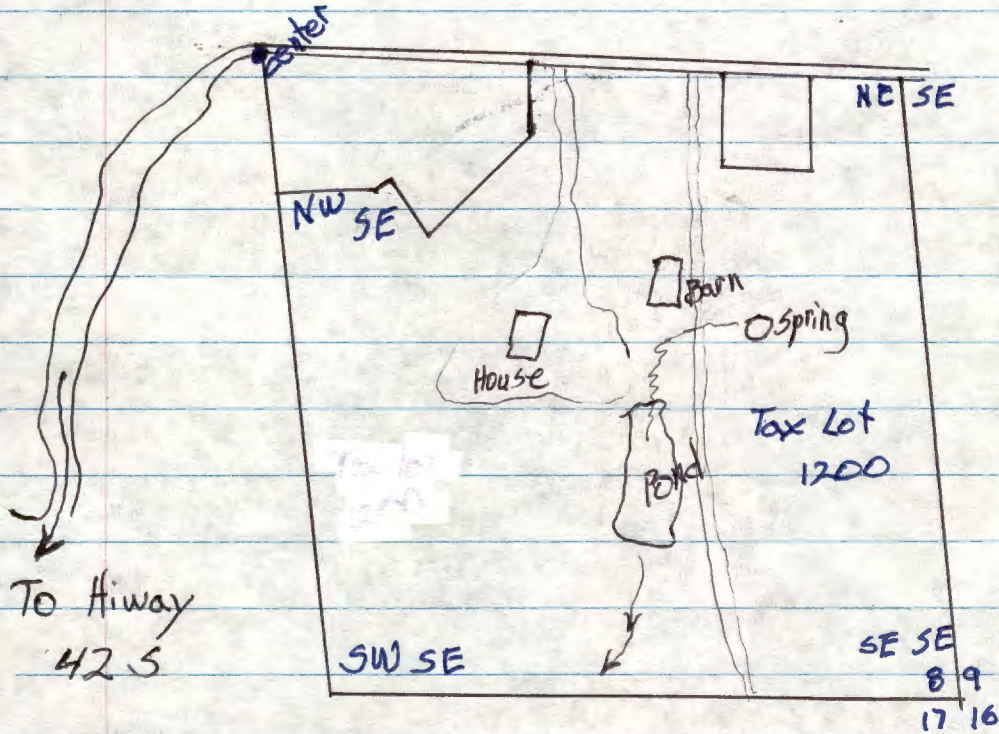 center
NE SE
NW
SE
Barn
Spring
House
Tax Lot
1200
Pond
To Hiway
42 S
SW SE
SE SE
8 9
17 16